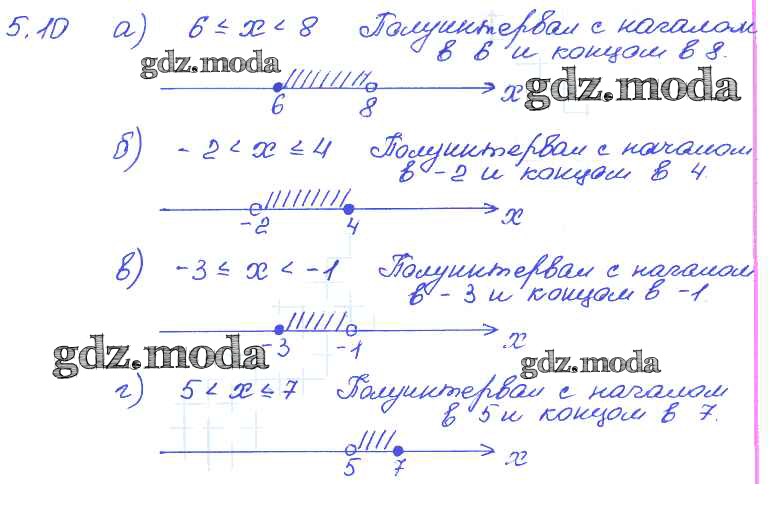 5.10 а) 6 ≤ x < 8 Полуинтервал с началом
в 6 и концом в 8.
gdz.moda
gdz.moda
6 8 x
б) -2 < x ≤ 4 Полуинтервал с началом
в -2 и концом в 4.
-2 4 x
в) -3 ≤ x < -1 Полуинтервал с началом
в -3 и концом в -1
-3 -1 x
gdz.moda
gdz.moda
г) 5 < x ≤ 7 Полуинтервал с началом
в 5 и концом в 7.
5 7 x